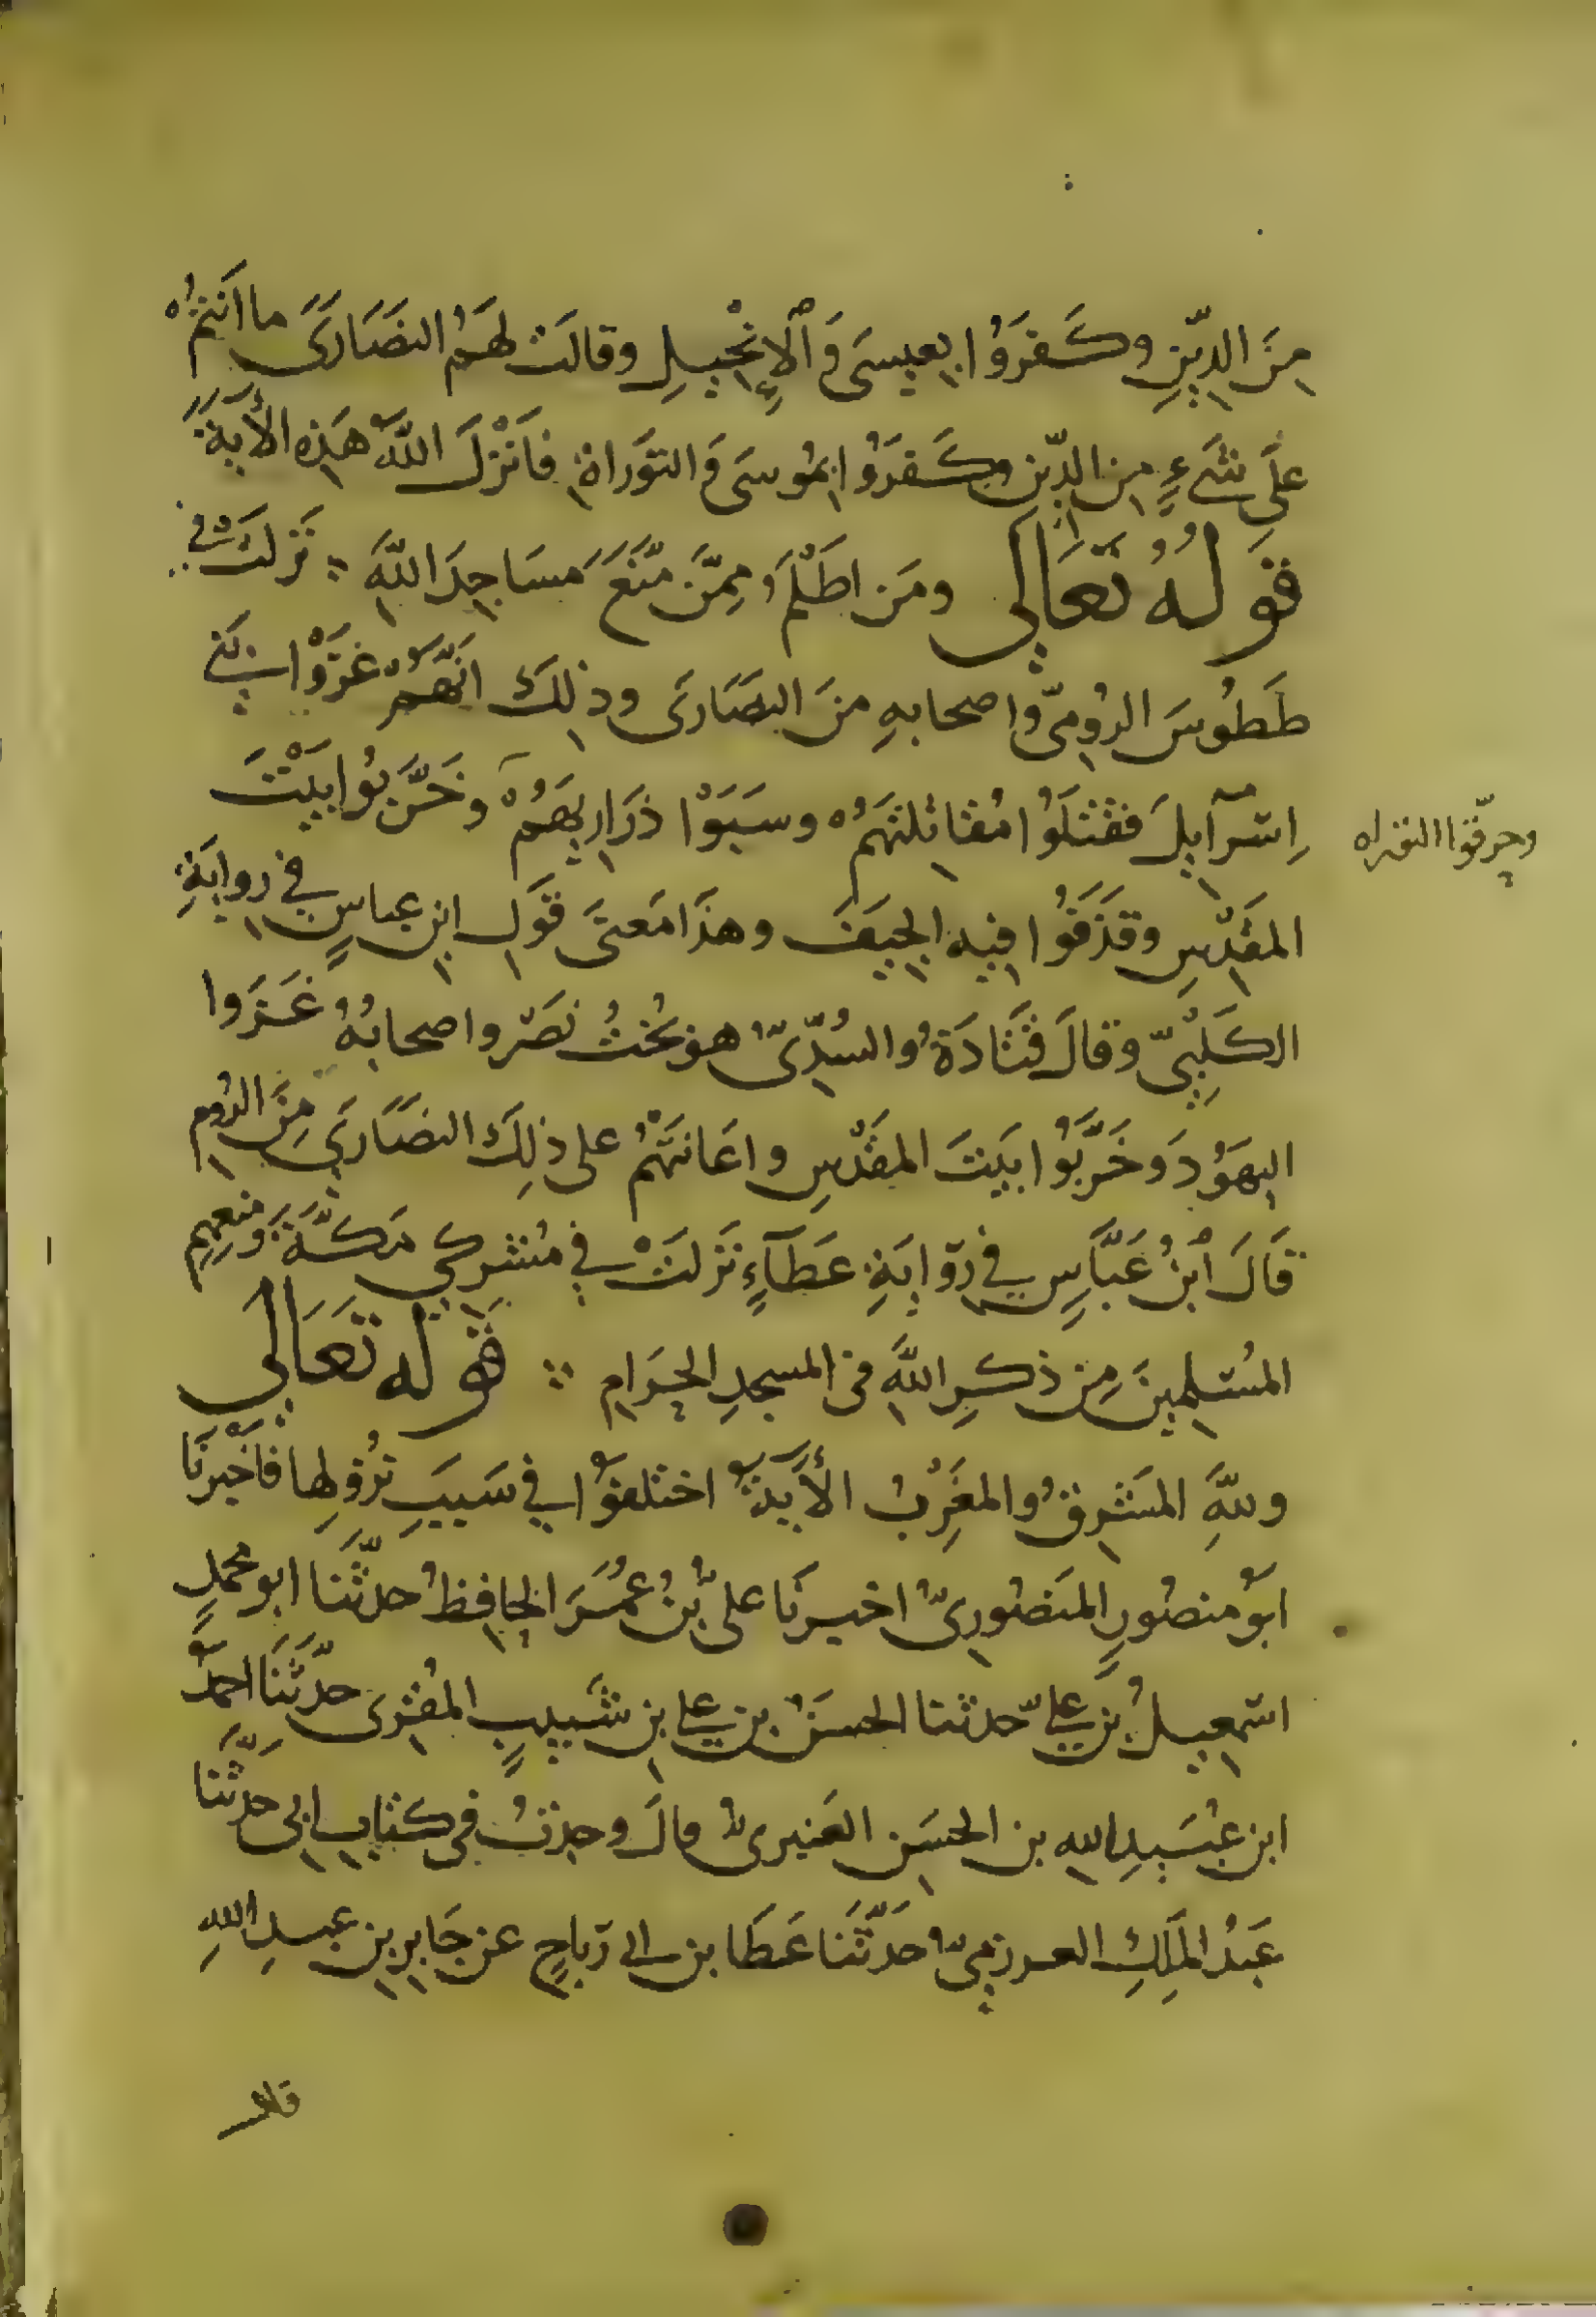 مِنَ الدِّينِ وكَفَرُوا بِعِيسَى وَالإِنْجِيلِ وقالَت لهُمُ النصَارَى ما انتمْ
عَلَى شَىءٍ مِن الدِّينِ وكَفَرُوا بمُوسَى وَالتوراةِ فأنْزَلَ اللهُ هَذِه الأيَةَ
قولُهُ تَعَالَى ومَن اظْلَمُ مِمَّن مَّنَعَ مَسَاجِدَ اللَّهِ نَزلَتْ فى
طَطُوسَ الرُومِىّ واصحابهِ منَ النصَارَى وذلِكَ انَّهُمْ غَزَوْا بَنى
اِسْرَآيلَ فقَتَلُوا مُقاتِلتَهُمْ وسَبَوْا ذَرَارِيَهُمْ وخَرَّبُوا بَيْتَ
وحرّقوا التوراه
المَقْدِسِ وقَذَفُوا فيه الجِيَفَ وهذَا مَعنَى قَولِ ابنِ عباسٍ فى رِوايَةِ
الكَلْبِىّ وقالَ قَتَادَةُ والسُدِّىُّ هو بُخْتُ نَصَّرَ واصحابُهُ غَزَوا
اليهَوُدَ وخَرَّبُوا بَيتَ المقَدْسِ واعَانَتْهُم على ذلِكَ النصَارَى مِنَ الرُومِ
قَالَ ابْنُ عَبَّاسٍ فى رِوَايَةِ عَطَآءٍ نَزلَتْ فى مُشرِكى مَكَّةَ ومنعِهِم
المُسْلِمِينَ مِن ذكرِ اللَّهِ فى المسجدِ الحرَامِ قوله تعَالَى
وللهِ المَشرِقُ والمَغرِبُ الأيَةُ اختلفُوا فى سَبَبِ نُزُولها فأخْبرنَا
ابُو منصُورٍ المَنصُورِىُّ اخبرنَا علىُّ بْنُ عُمَرَ الحافِظُ حدثَّنا ابو محمدٍ
اسْمعيلُ بن علىّ حدثنا الحسَنُ بن على بن شَبِيبٍ المُقرِى حدَّثَنَا احمدُ
ابن عبَيدِ الله بن الحسَن العَنبرىُّ قالَ وجدتُ فى كتابِ ابى حدثَّنا
عَبْدُ الملَكِ العرزمِىُّ حَدَّثَنَا عَطَا بن ابى رَبَاحٍ عن جَابِرِ بن عبدِ اللهِ
قال